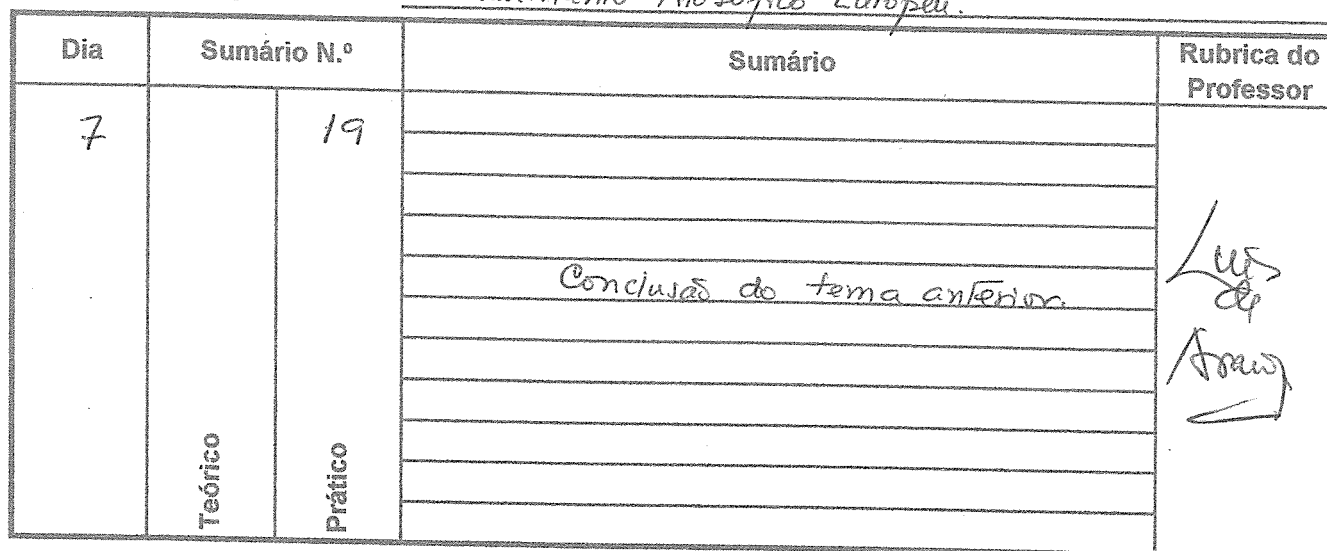 Filosófico Europeu.
Dia
Sumário N.º
Sumário
Rubrica do
Professor
7
19
Conclusão do tema anterior.
Luís
de
Araújo
Teórico
Prático